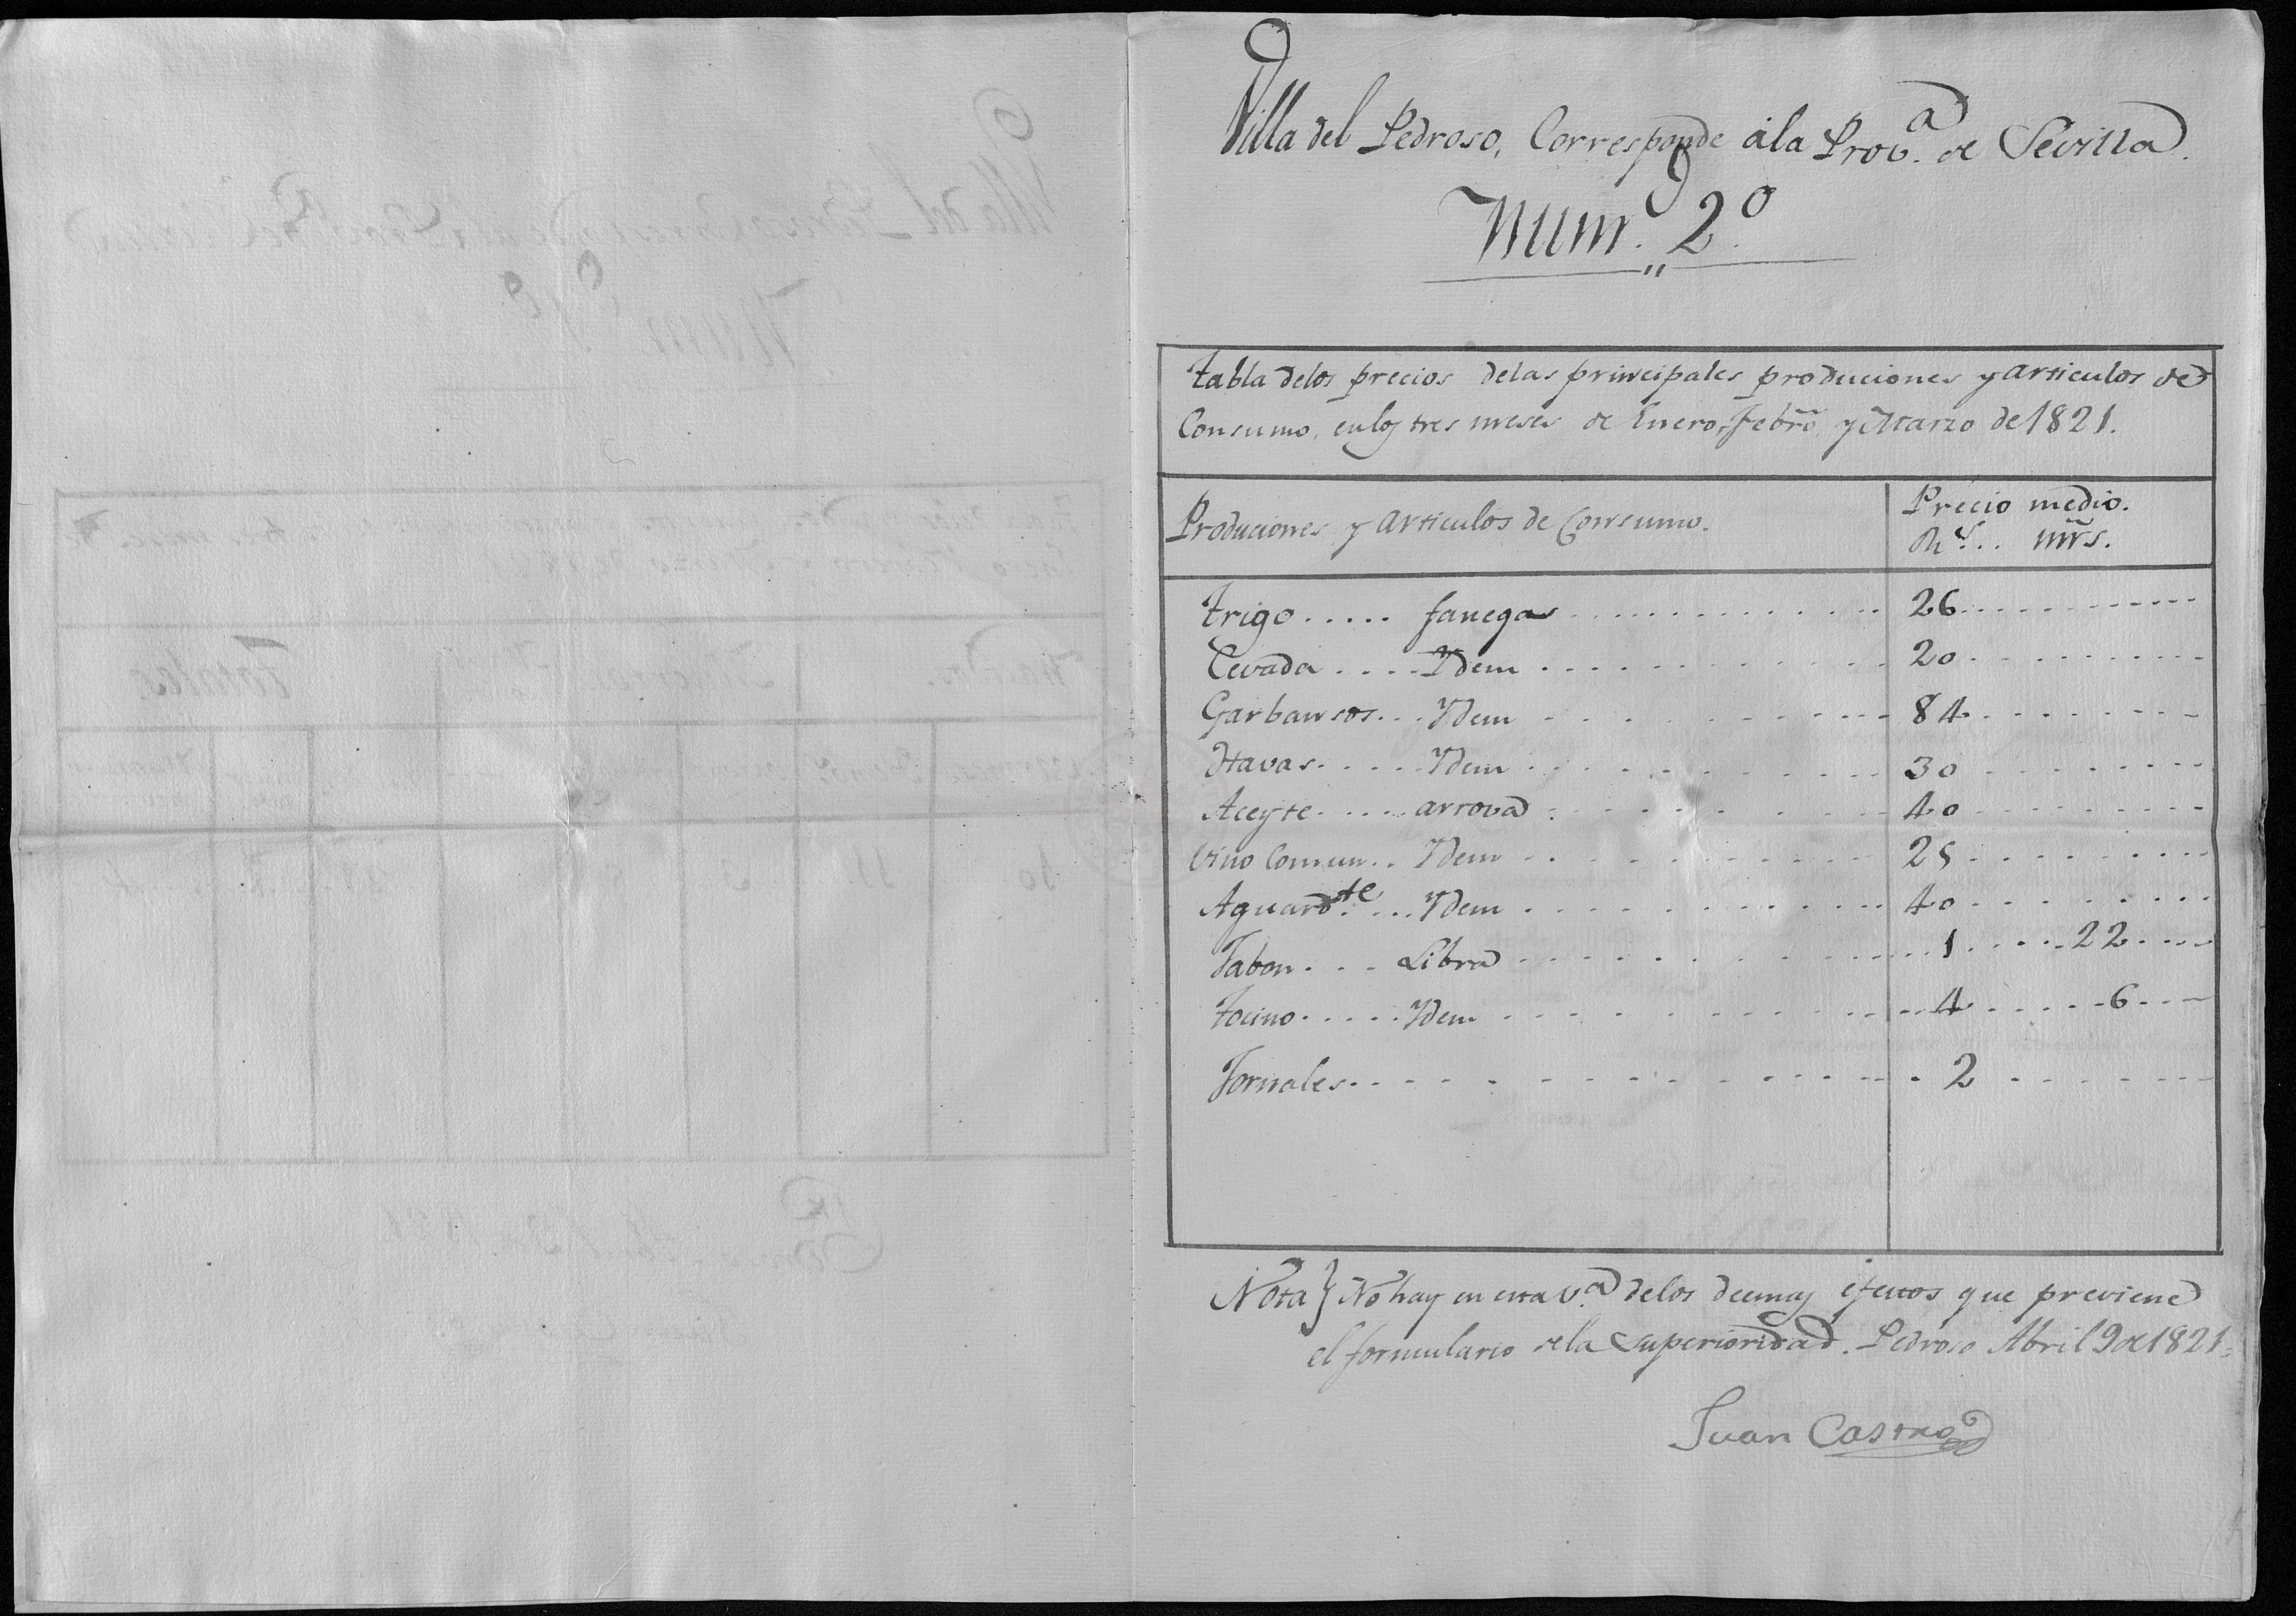 Villa del Pedroso, Corresponde á la Prov.ª de Sevilla.
Num.º 2.º
Tabla delos precios delas principales produciones y articulos de
Consumo, en los tres meses de Enero, Febrō y Marzo de 1821.
Produciones y articulos de Consumo. Precio medio.
Rˢ... mr̃s.
Trigo..... fanega 26
Cevada.... Ydem 20
Garbansos... Ydem 84
Havas..... Ydem 30
Aceyte..... arrova 40
Vino Comun.. Ydem 25
Aguardᵗᵉ.... Ydem 40
Jabon... Libra 1 22
Tocino..... Ydem 4 6
Jornales 2
Nota } No hay en esta v.ª delos demas efectos que previene
el formulario de la Superioridad. Pedroso Abril 9 de 1821.
Juan Castro